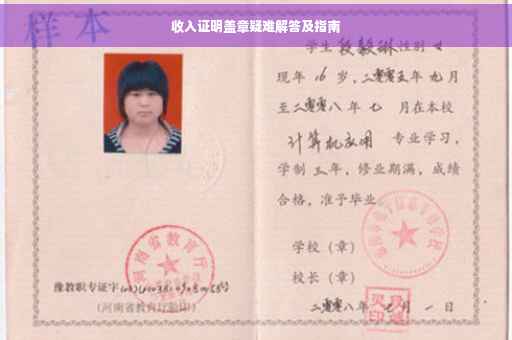 收入证明盖章疑难解答及指南
样本
学生段毅琳性别女
现年16岁，二零零五年九月
至二零零八年七月在本校
计算机应用 专业学习，
学制三年，修业期满，成绩
合格，准予毕业。
学校（章）
校长（章）
二零零八年七月一日
河南省教育厅
豫教职专证字
（河南省教育厅验印）